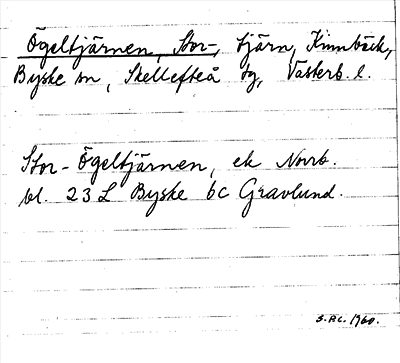 Ögeltjärnen, Stor-, tjärn, Kinnbäck,
Byske sn, Skellefteå tg, Västerb. l.
Stor-Ögeltjärnen, ek Norrb.
bl. 23 L Byske 6c Gravlund.
S.R.C. 1960.